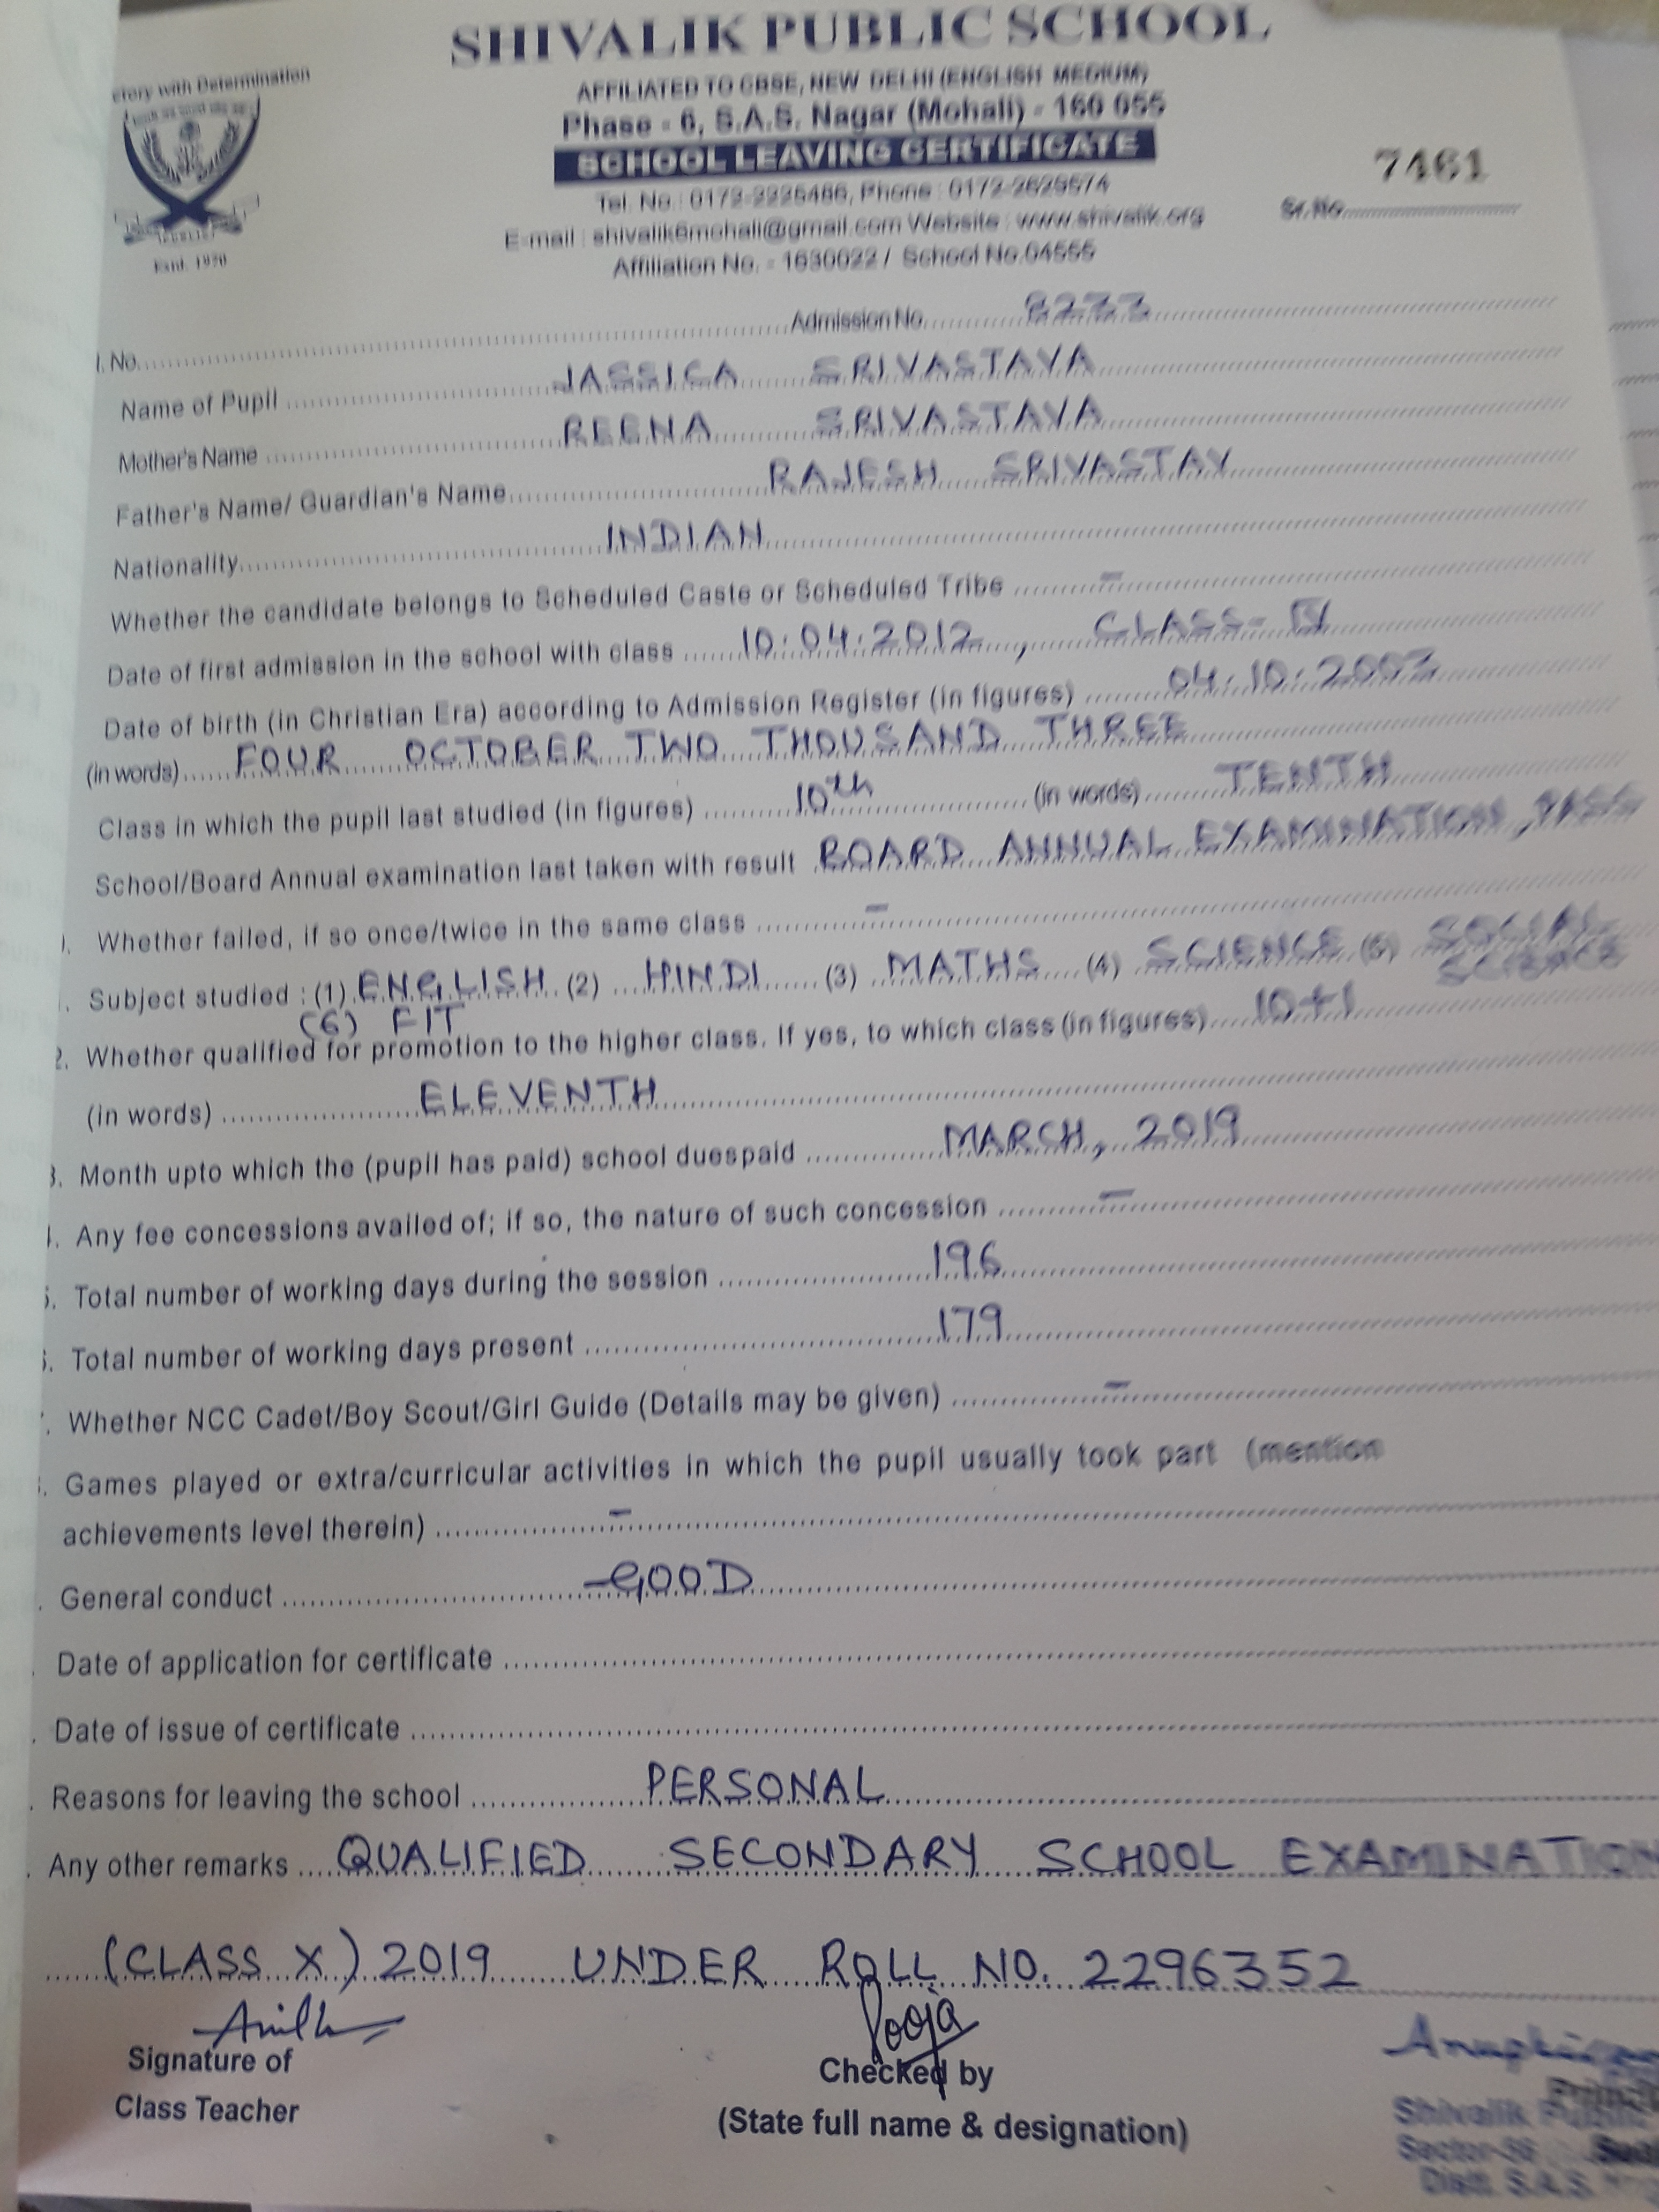 SHIVALIK PUBLIC SCHOOL
AFFILIATED TO CBSE, NEW DELHI (ENGLISH MEDIUM)
Phase - 6, S.A.S. Nagar (Mohali) - 160 055
SCHOOL LEAVING CERTIFICATE
with Determination
Estd. 1970
7461
Sr.No.
Tel. No.: 0172-2225486, Phone : 0172-2629574
E-mail : shivalik6mohali@gmail.com Website : www.shivalik.org
Affiliation No. - 1630022 / School No.04555
No. Admission No. 8233
Name of Pupil JASSICA SRIVASTAVA
Mother's Name REENA SRIVASTAVA
Father's Name/ Guardian's Name RAJESH SRIVASTAV
Nationality INDIAN
Whether the candidate belongs to Scheduled Caste or Scheduled Tribe –
Date of first admission in the school with class 10:04:2012, CLASS-IV
Date of birth (in Christian Era) according to Admission Register (in figures) 04:10:2003
(in words) FOUR OCTOBER TWO THOUSAND THREE
Class in which the pupil last studied (in figures) 10th (in words) TENTH
School/Board Annual examination last taken with result BOARD ANNUAL EXAMINATION, PASS
Whether failed, if so once/twice in the same class –
Subject studied : (1) ENGLISH (2) HINDI (3) MATHS (4) SCIENCE (5) SOCIAL SCIENCE
(6) FIT
2. Whether qualified for promotion to the higher class. If yes, to which class (in figures) 10+1
(in words) ELEVENTH
3. Month upto which the (pupil has paid) school duespaid MARCH, 2019
Any fee concessions availed of; if so, the nature of such concession –
Total number of working days during the session 196
Total number of working days present 179
Whether NCC Cadet/Boy Scout/Girl Guide (Details may be given) –
Games played or extra/curricular activities in which the pupil usually took part (mention
achievements level therein) –
General conduct GOOD
Date of application for certificate
Date of issue of certificate
Reasons for leaving the school PERSONAL
Any other remarks QUALIFIED SECONDARY SCHOOL EXAMINATION
(CLASS X) 2019 UNDER ROLL NO. 2296352
Pooja
Signature of
Class Teacher
Checked by
(State full name & designation)
Shivalik Public
Distt. S.A.S.